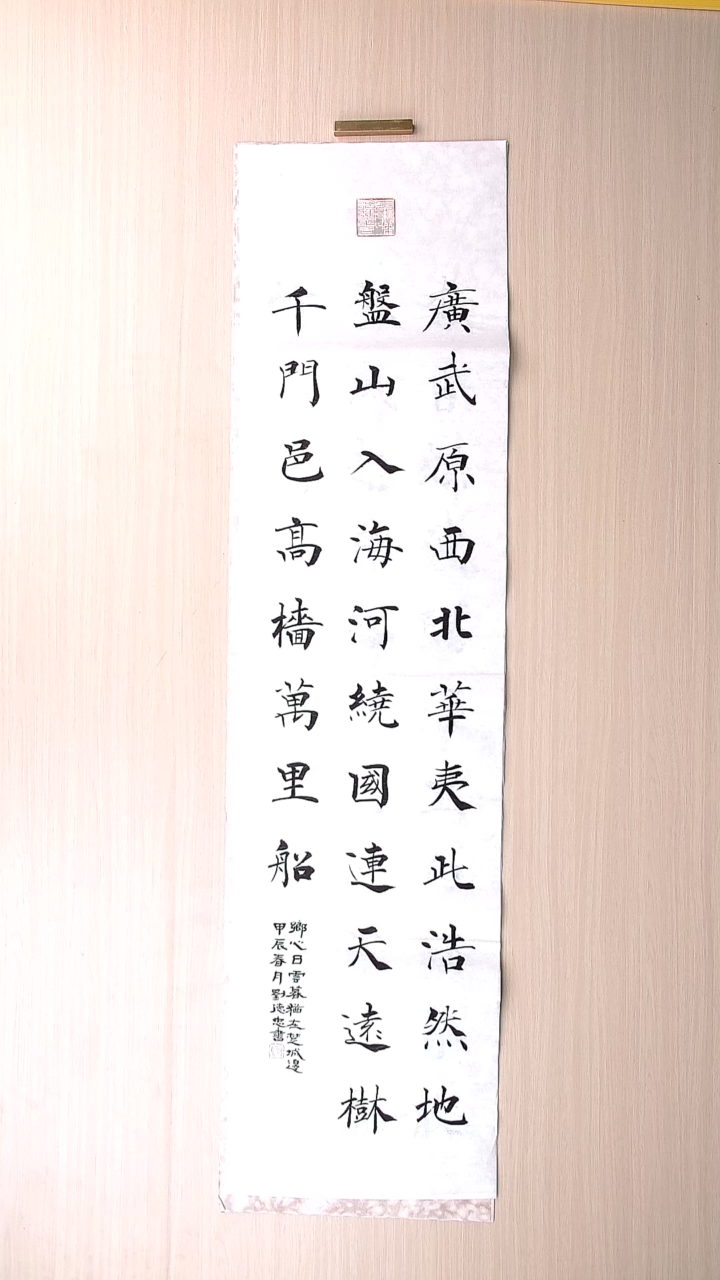 廣武原西北華夷此浩然地
盤山入海河繞國連天遠樹
千門邑高檣萬里船
鄉心日雲暮猶在楚城邊
甲辰春月劉德忠書